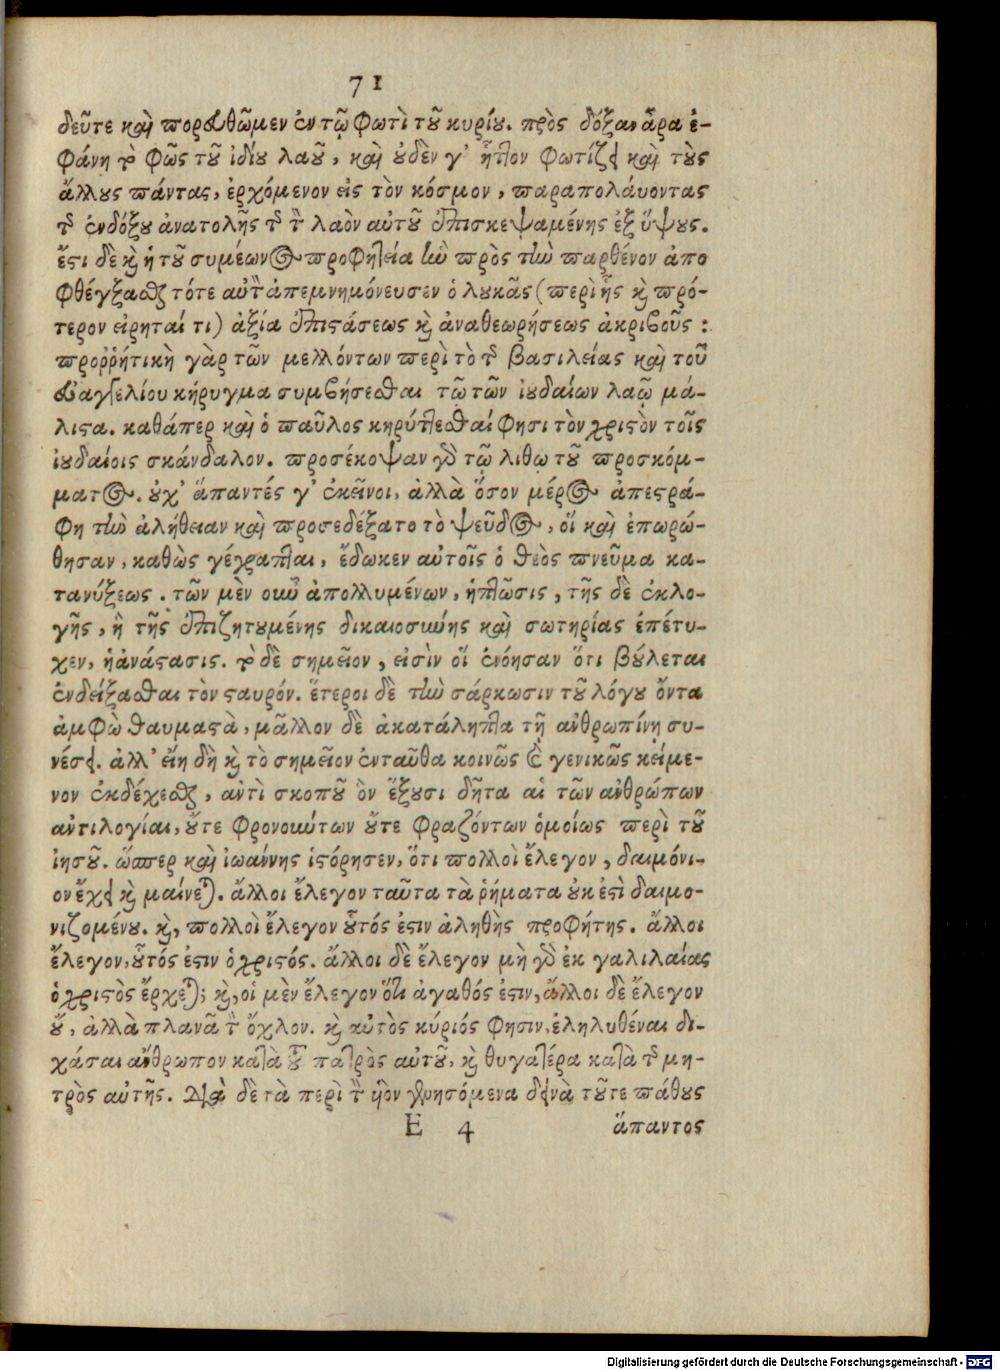 71
δεῦτε καὶ πορευθῶμεν ἐν τῷ φωτὶ τοῦ κυρίου. πρὸς δόξαν ἄρα ἐ-
φάνη τὸ φῶς τοῦ ἰδίου λαοῦ, καὶ οὐδὲν γ' ἧττον φωτίζει καὶ τοὺς
ἄλλους πάντας, ἐρχόμενον εἰς τὸν κόσμον, παραπολάυοντας
τῆς ἐνδόξου ἀνατολῆς τῆς τὸν λαὸν αὐτοῦ ἐπισκεψαμένης ἐξ ὕψους.
ἔστι δὲ καὶ ἡ τοῦ συμέωνος προφητεία ἣν πρὸς τὴν παρθένον ἀπο
φθέγξασθαι τότε αὐτὸν ἀπεμνημόνευσεν ὁ λουκᾶς (περὶ ἧς καὶ πρό-
τερον εἰρηταί τι) ἀξία ἐπιστάσεως καὶ ἀναθεωρήσεως ἀκριβοῦς:
προῤῥητικὴ γὰρ τῶν μελλόντων περὶ τὸ τῆς βασιλείας καὶ τοῦ
εὐαγγελίου κήρυγμα συμβήσεσθαι τῷ τῶν ἰουδαίων λαῷ μά-
λιστα. καθάπερ καὶ ὁ παῦλος κηρύττεσθαί φησι τὸν χριστὸν τοῖς
ἰουδαίοις σκάνδαλον. προσέκοψαν γὰρ τῷ λίθῳ τοῦ προσκόμ-
ματος. οὐχ' ἅπαντές γ' ἐκεῖνοι, ἀλλὰ ὅσον μέρος ἀπεστρά-
φη τὴν ἀλήθειαν καὶ προσεδέξατο τὸ ψεῦδος, οἵ καὶ ἐπωρώ-
θησαν, καθὼς γέγραπται, ἔδωκεν αὐτοῖς ὁ θεὸς πνεῦμα κα-
τανύξεως. τῶν μὲν οὖν ἀπολλυμένων, ἡ πτῶσις, τῆς δὲ ἐκλο-
γῆς, ἣ τῆς ἐπιζητουμένης δικαιοσύνης καὶ σωτηρίας ἐπέτυ-
χεν, ἡ ἀνάστασις. τὸ δὲ σημεῖον, εἰσὶν οἵ ἐνόησαν ὅτι βούλεται
ἐνδείξασθαι τὸν σταυρόν. ἕτεροι δὲ τὴν σάρκωσιν τοῦ λόγου ὄντα
ἀμφὼ θαυμαστὰ, μᾶλλον δὲ ἀκατάληπτα τῇ ἀνθρωπίνῃ συ-
νέσει. ἀλλ' εἴη δὴ καὶ τὸ σημεῖον ἐνταῦθα κοινῶς καὶ γενικῶς κείμε-
νον ἐκδέχεσθαι, ἀντὶ σκοποῦ ὃν ἕξουσι δῆτα αἱ τῶν ἀνθρώπων
ἀντιλογίαι, οὔτε φρονούντων οὔτε φραζόντων ὁμοίως περὶ τοῦ
ἰησοῦ. ὥσπερ καὶ ἰωάννης ἱστόρησεν, ὅτι πολλοὶ ἔλεγον, δαιμόνι-
ον ἔχει καὶ μαίνεται. ἄλλοι ἔλεγον ταῦτα τὰ ῥήματα οὐκ ἐστὶ δαιμο-
νιζομένου. καὶ, πολλοὶ ἔλεγον οὗτός ἐστιν ἀληθὴς προφήτης. ἄλλοι
ἔλεγον, οὗτός ἐστιν ὁ χριστός. ἄλλοι δὲ ἔλεγον μὴ γὰρ ἐκ γαλιλαίας
ὁ χριστὸς ἔρχεται; καὶ, οἱ μὲν ἔλεγον ὅτι ἀγαθός ἐστιν, ἄλλοι δὲ ἔλεγον
οὔ, ἀλλὰ πλανᾷ τὸν ὄχλον. καὶ αὐτὸς κύριός φησιν, ἐληλυθέναι δι-
χάσαι ἄνθρωπον κατὰ τοῦ πατρὸς αὐτοῦ, καὶ θυγατέρα κατὰ τῆς μη-
τρὸς αὐτῆς. δὲ τὰ περὶ τὸν υἱὸν γενησόμενα δεινὰ τοῦτε πάθους
E 4 ἅπαντος
Digitalisierung gefördert durch die Deutsche Forschungsgemeinschaft - DFG